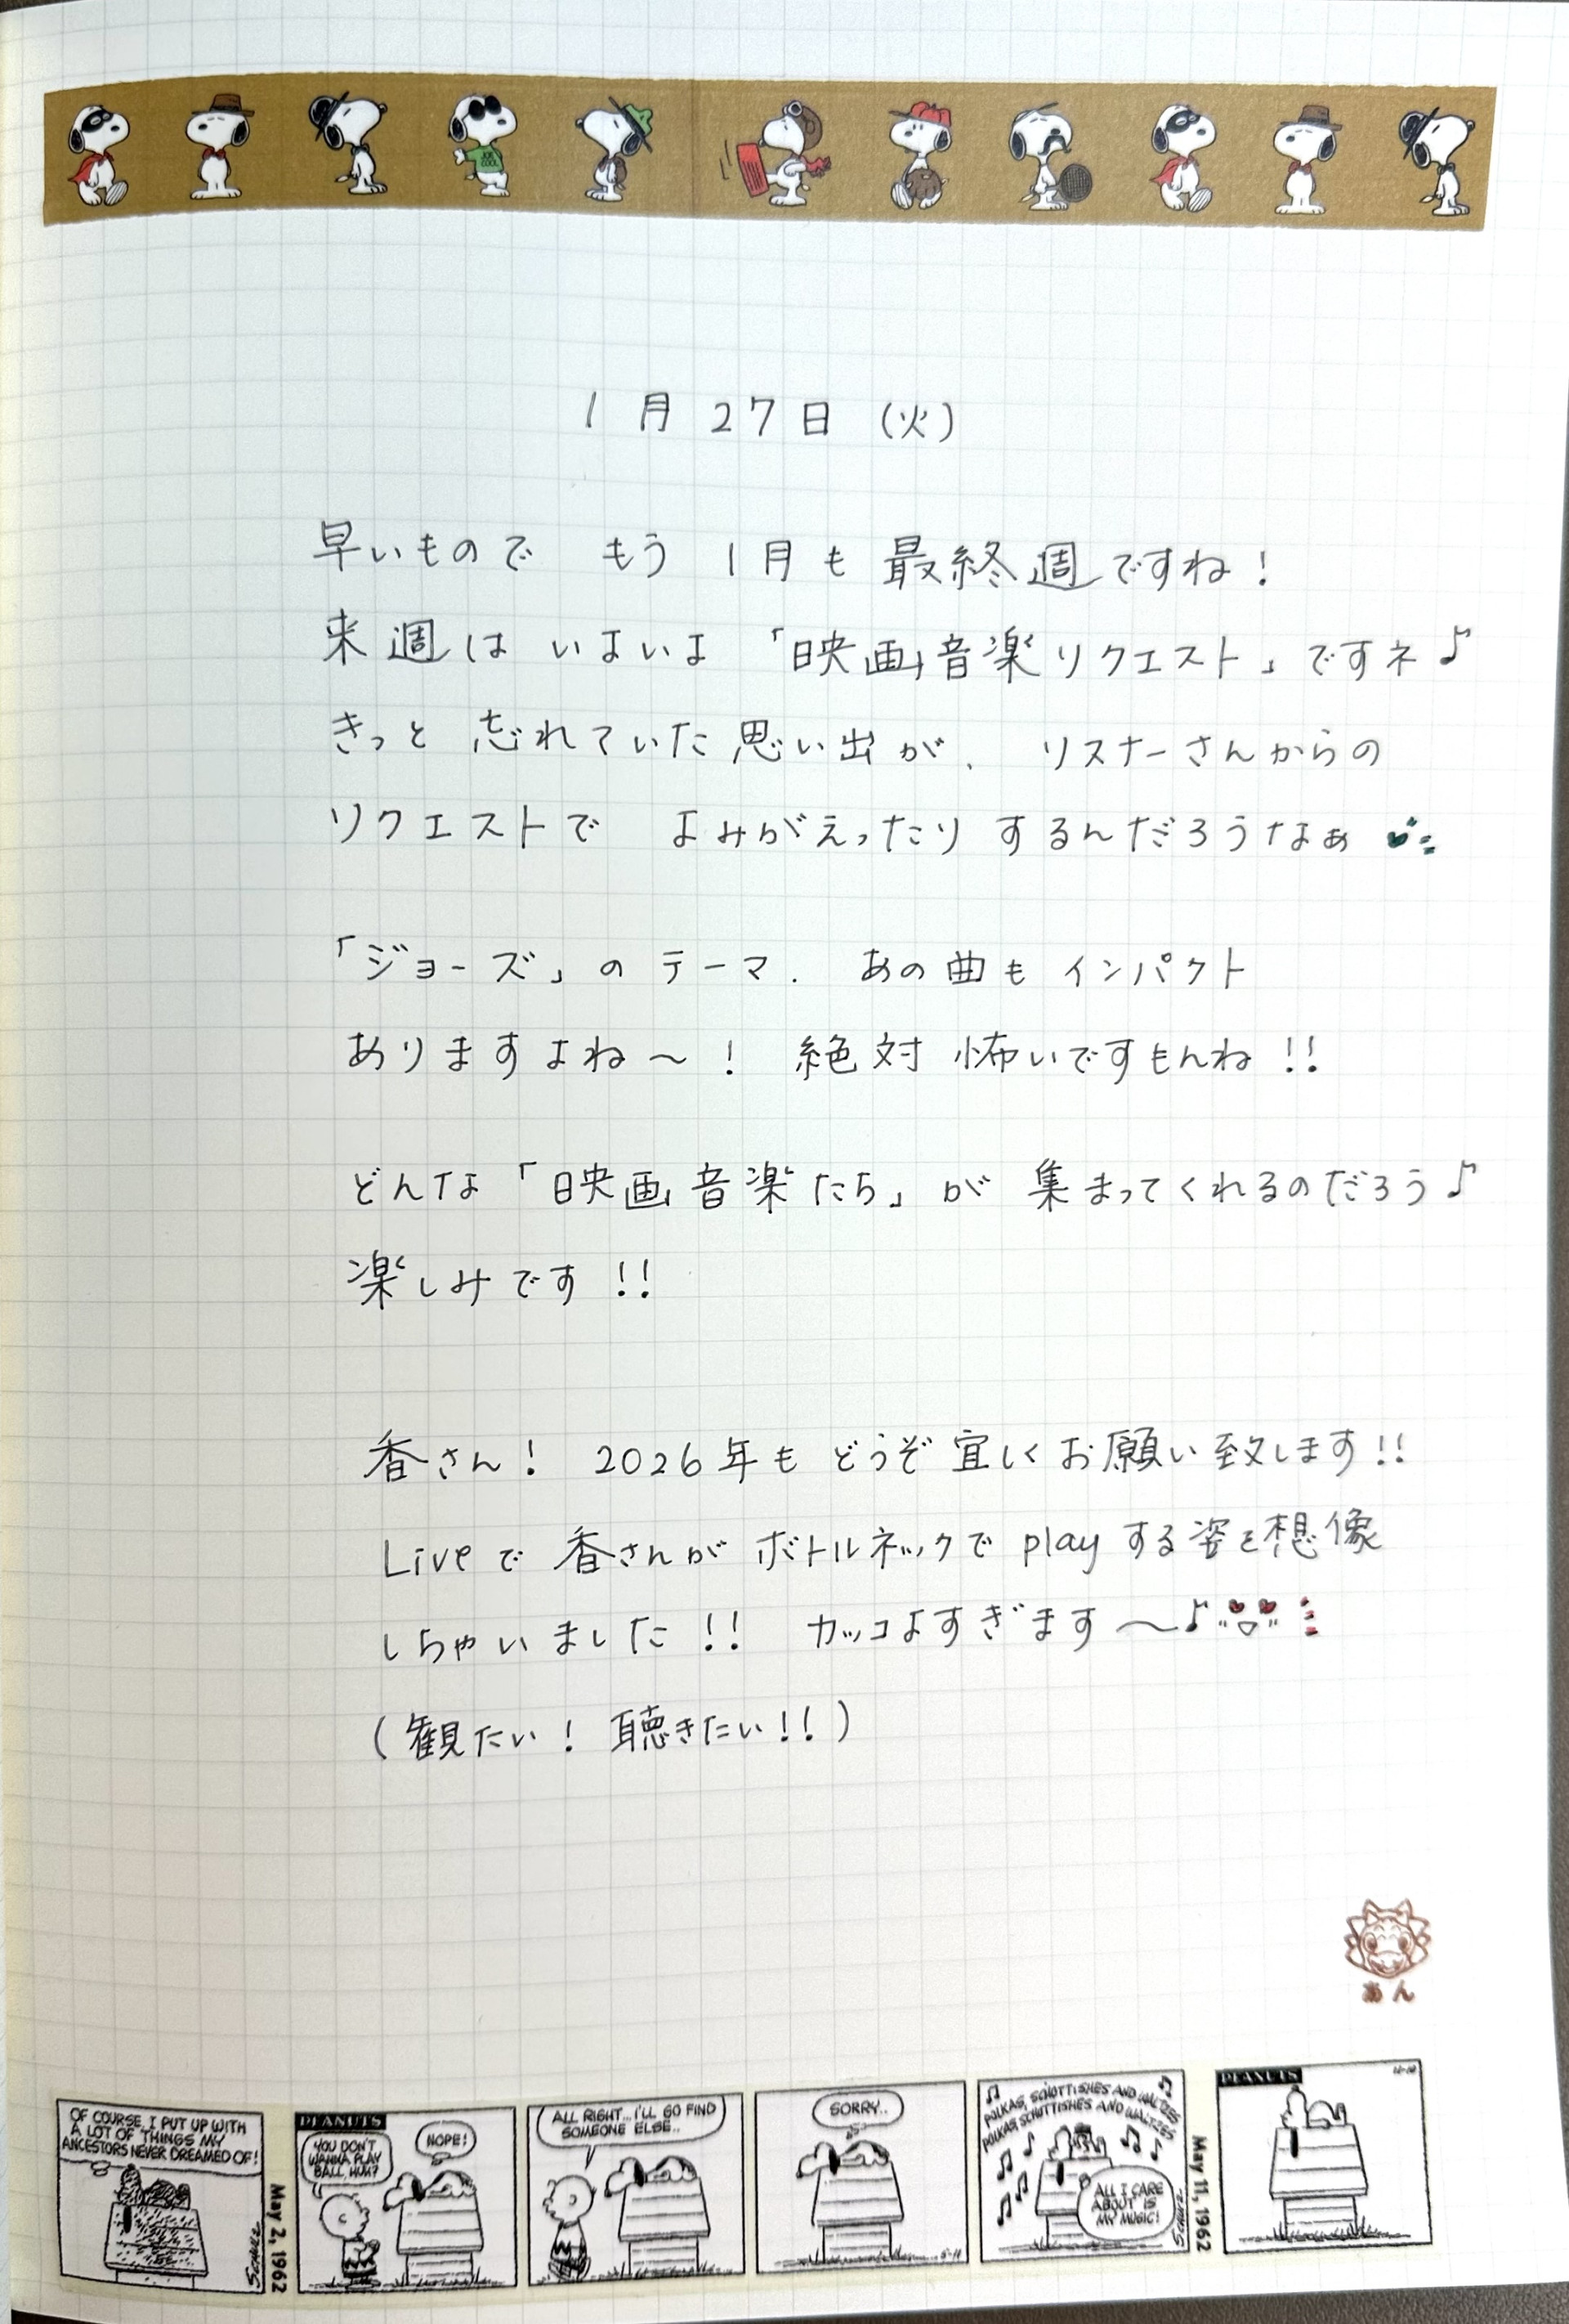 JOE COOL
1月27日（火）
早いもので　もう　1月も　最終週ですね！
来週は　いよいよ　「映画音楽リクエスト」ですネ♪
きっと　忘れていた思い出が、　リスナーさんからの
リクエストで　よみがえったり　するんだろうなぁ
「ジョーズ」の　テーマ．　あの曲も　インパクト
ありますよね〜！　絶対　怖いですもんね！！
どんな「映画音楽たち」が　集まってくれるのだろう♪
楽しみです！！
香さん！　2026年も　どうぞ　宜しく　お願い致します！！
Liveで　香さんが　ボトルネックで　playする姿を想像
しちゃいました！！　カッコよすぎます〜♪
（観たい！　聴きたい！！）
あん
OF COURSE, I PUT UP WITH
A LOT OF THINGS MY
ANCESTORS NEVER DREAMED OF!
SCHULZ
May 2, 1962
PEANUTS
YOU DON'T
WANNA PLAY
BALL, HUH?
NOPE!
ALL RIGHT...I'LL GO FIND
SOMEONE ELSE..
SORRY..
5-11
POLKAS, SCHOTTISHES AND WALTZES
POLKAS, SCHOTTISHES AND WALTZES
ALL I CARE
ABOUT IS
MY MUSIC!
SCHULZ
May 11, 1962
PEANUTS